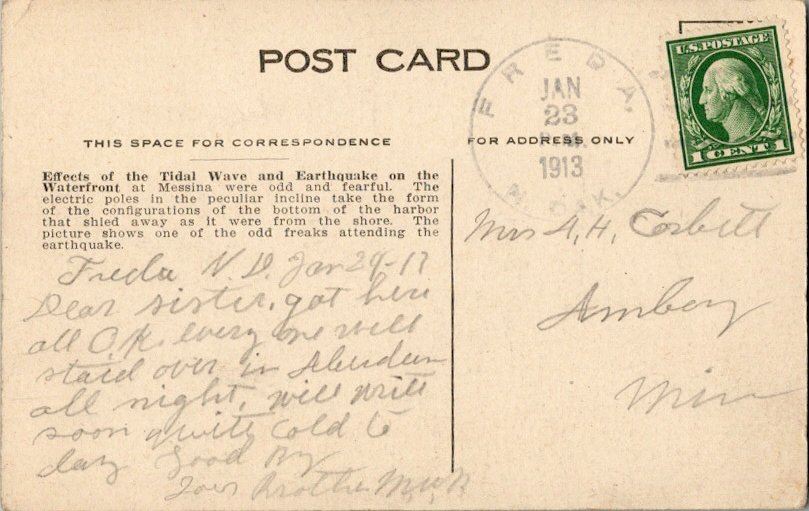 POST CARD
FREDA,
JAN
23
1913
N. DAK.
U.S. POSTAGE
1 CENT 1
THIS SPACE FOR CORRESPONDENCE
FOR ADDRESS ONLY
Effects of the Tidal Wave and Earthquake on the
Waterfront at Messina were odd and fearful. The
electric poles in the peculiar incline take the form
of the configurations of the bottom of the harbor
that shied away as it were from the shore. The
picture shows one of the odd freaks attending the
earthquake.
Freda N.D. Jan
Dear sister, got here
all O.K. every one well
staid over in Aberdeen
all night, will write
soon quite cold to
day Good By
Your Brother
Mrs A, H, Corbett
Amboy
Minn